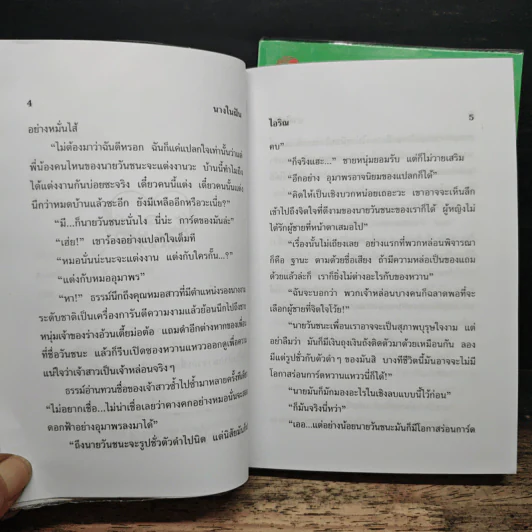 4
นางในฝัน
อย่างหมั่นไส้
"ไม่ต้องมาว่าฉันดีหรอก ฉันก็แค่แปลกใจเท่านั้นว่าแต่
พี่น้องคนไหนของนายวันชนะจะแต่งงานวะ บ้านนี้ทำไมถึง
ได้แต่งงานกันบ่อยซะจริง เดี๋ยวคนนี้แต่ง เดี๋ยวคนนั้นแต่ง
นึกว่าหมดบ้านแล้วซะอีก ยังมีเหลืออีกหรือวะเนี่ย?"
"มี...ก็นายวันชนะนั่นไง นี่น่ะ การ์ดของมันล่ะ"
"เฮ่ย!" เขาร้องอย่างแปลกใจเต็มที่
"หมอนั่นน่ะจะแต่งงาน แต่งกับใครกั้น...?"
"แต่งกับหมออุมาพร"
"หา!" ธรรม์นึกถึงคุณหมอสาวที่มีตำแหน่งรองนางงาม
ระดับชาติเป็นเครื่องการันตีความงามแล้วย้อนนึกไปถึง
หนุ่มเจ้าของร่างอ้วนเตี้ยม่อต้อ แถมดำอีกต่างหากของเพื่อน
ที่ชื่อวันชนะ แล้วก็รีบเปิดซองหวานแหววออกดูเพื่อความ
แน่ใจว่าเจ้าสาวเป็นเจ้าหล่อนจริงๆ
ธรรม์อ่านทวนชื่อของเจ้าสาวซ้ำไปซ้ำมาหลายครั้ง
"ไม่อยากเชื่อ...ไม่น่าเชื่อเลยว่าคางคกอย่างหมอนั่นจะ
ดอกฟ้าอย่างอุมาพรลงมาได้"
"ถึงนายวันชนะจะรูปชั่วตัวดำไปนิด แต่นิสัยมัน
ไอริณ
5
คบ"
"ก็จริงแฮะ..." ชายหนุ่มยอมรับ แต่ก็ไม่วายเสริม
"อีกอย่าง อุมาพรอาจนิยมของแปลกก็ได้"
"คิดให้เป็นเชิงบวกหน่อยเถอะวะ เขาอาจจะเห็นลึก
เข้าไปถึงจิตใจที่ดีงามของนายวันชนะของเราก็ได้ ผู้หญิงไม่
ได้รักผู้ชายที่หน้าตาเสมอไป"
"เรื่องนั้นไม่เถียงเลย อย่างแรกที่พวกหล่อนพิจารณา
ก็คือ ฐานะ ตามด้วยชื่อเสียง ถ้ามีความหล่อเป็นของแถม
ด้วยแล้วล่ะก็ เราก็ยิ่งไม่ต่างอะไรกับของหวาน"
"ฉันจะบอกว่า พวกเจ้าหล่อนบางคนก็ฉลาดพอที่จะ
เลือกผู้ชายที่จิตใจโว้ย!"
"นายวันชนะเพื่อนเราอาจจะเป็นสุภาพบุรุษใจงาม แต่
อย่าลืมว่า มันก็มีเงินถุงเงินถังติดตัวมาด้วยเหมือนกัน ลอง
มีแต่รูปชั่วกับตัวดำๆ ของมันสิ บางทีชีวิตนี้มันอาจจะไม่มี
โอกาสร่อนการ์ดหวานแหววนี่ก็ได้!"
"นายมันก็มักมองอะไรในเชิงลบแบบนี้ไว้ก่อน"
"ก็มันจริงนี่หว่า"
"เออ...แต่อย่างน้อยนายวันชนะมันก็มีโอกาสร่อนการ์ด